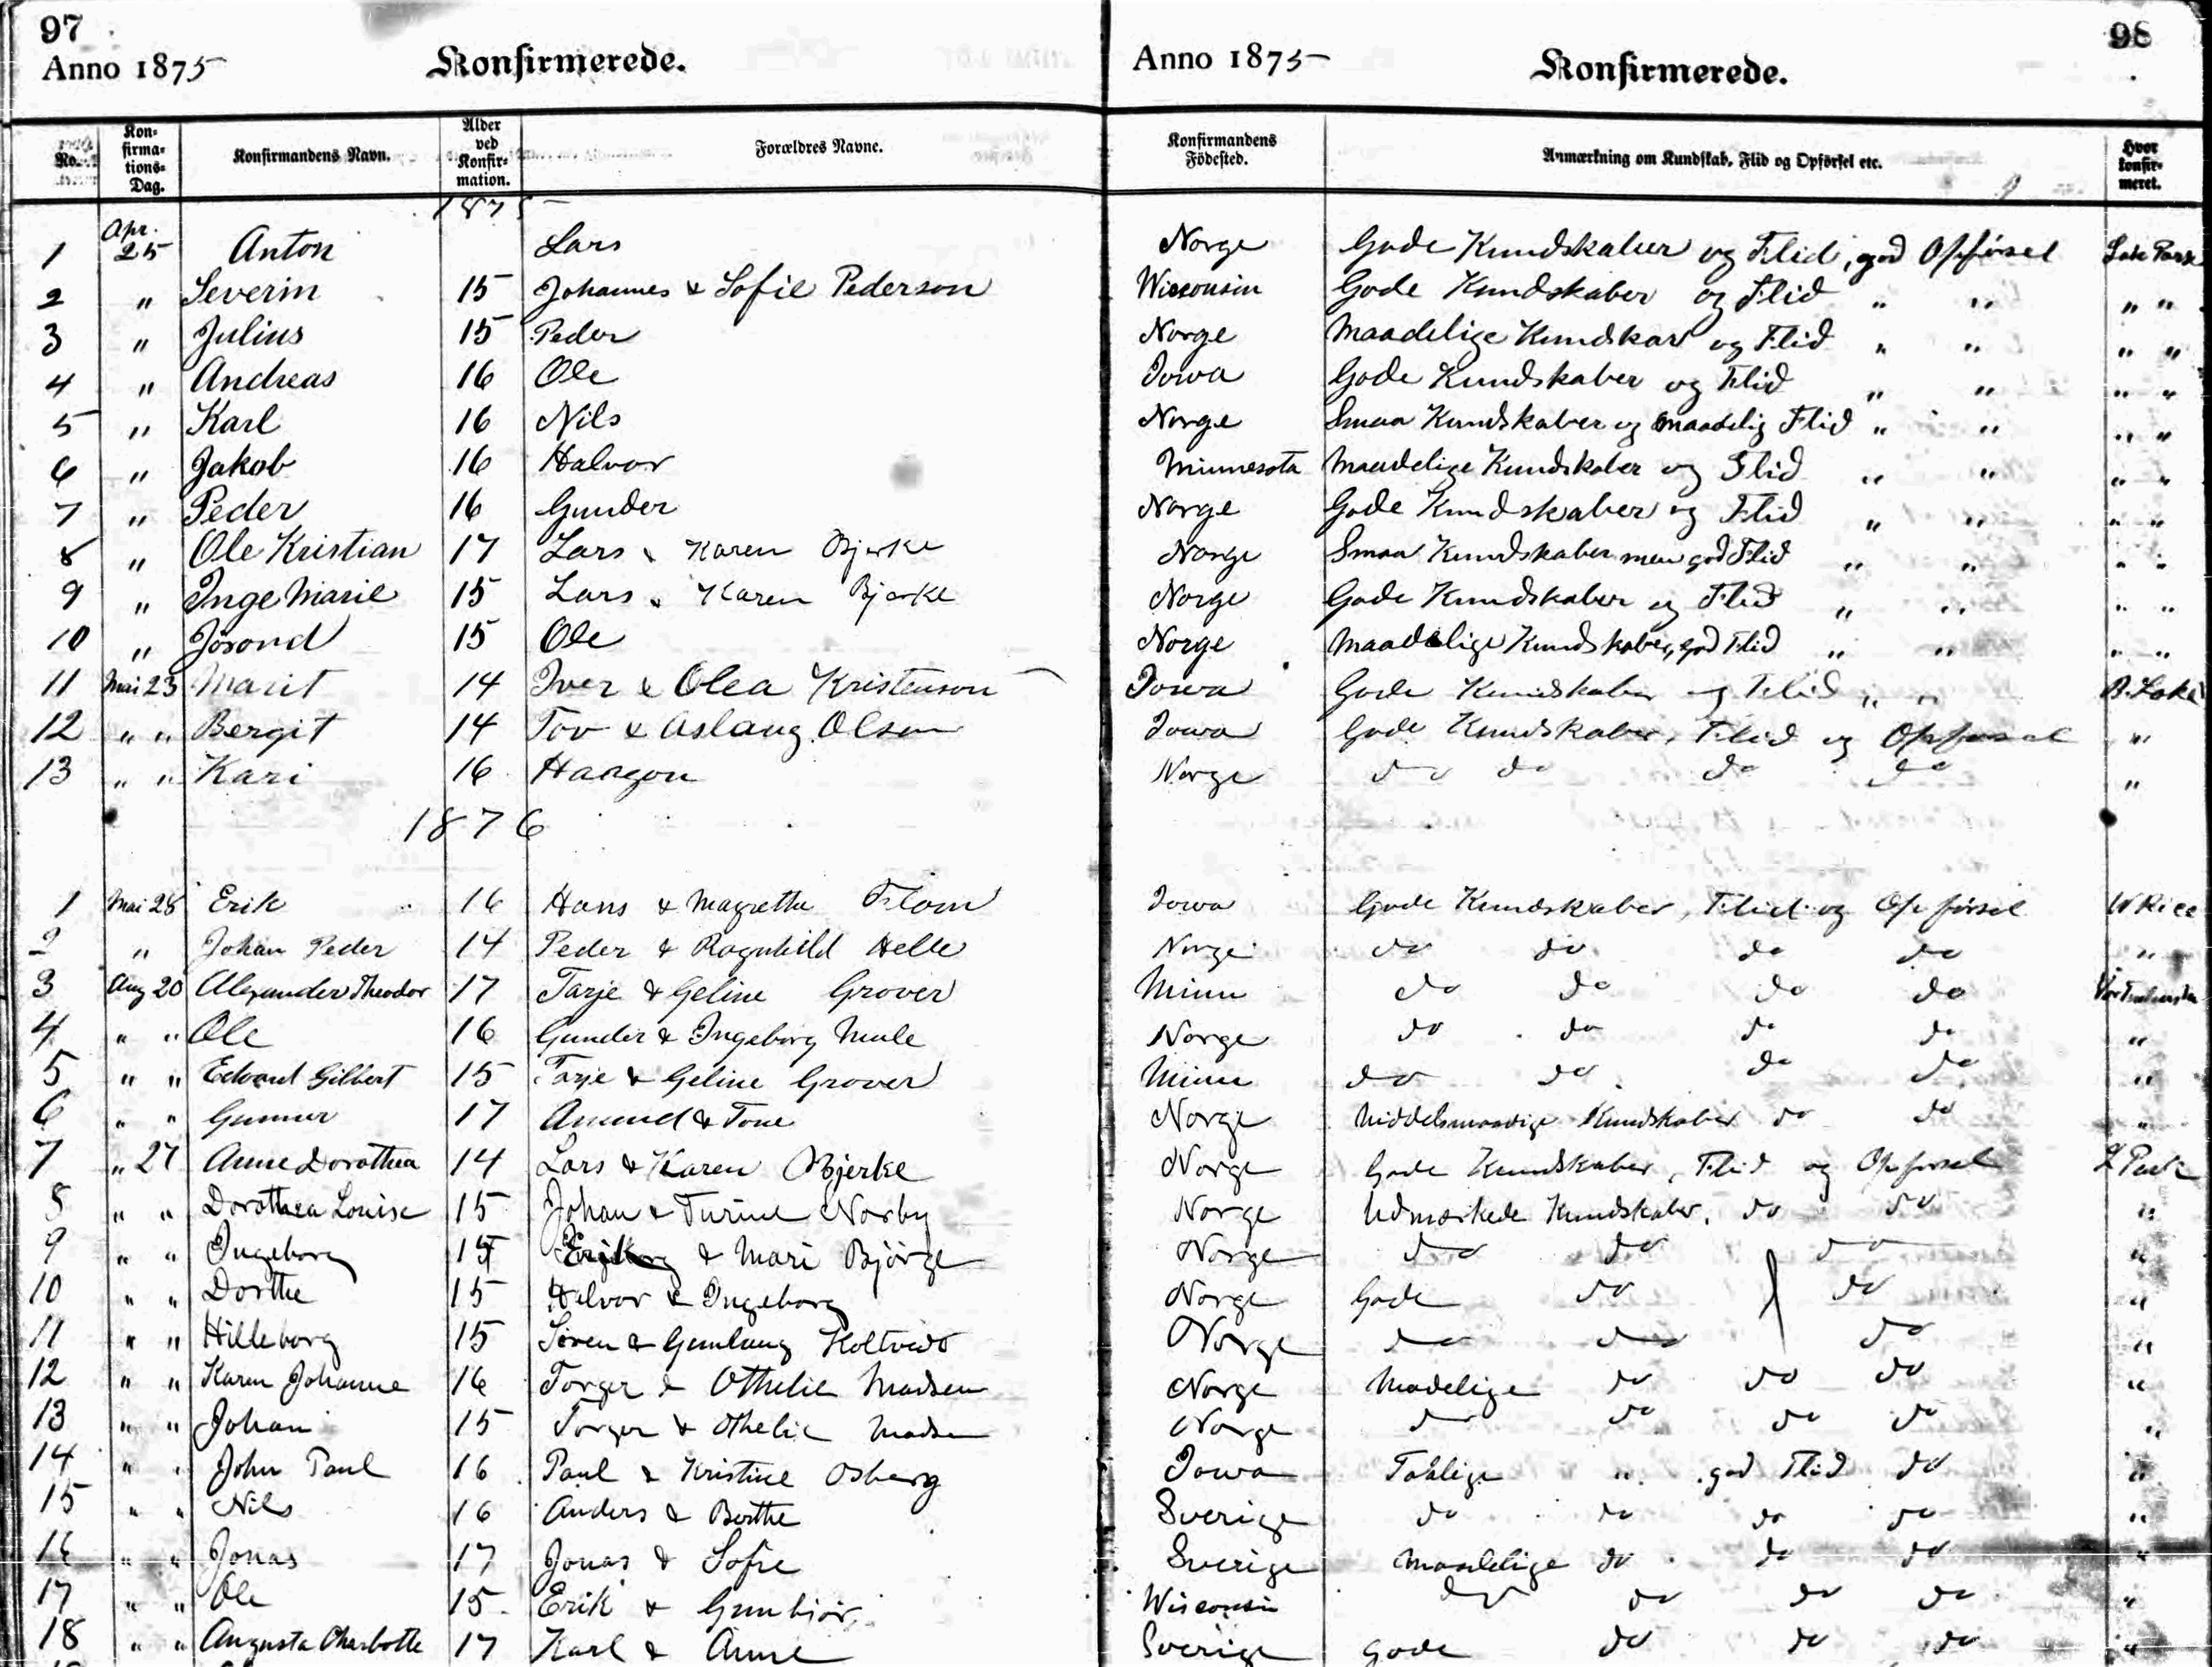 97
Anno 1875
Konfirmerede.
Anno 1875
Konfirmerede.
98
No.
Kon-
firma-
tions-
Dag.
Konfirmandens Navn.
Alder
ved
Konfir-
mation.
Forældres Navne.
Konfirmandens
Födested.
Anmærkning om Kundskab, Flid og Opførsel etc.
Hvor
konfir-
meret.
1875
1 Apr. 25 Anton Lars Norge Gode Kundskaber og Flid, god Opförsel Lake Park
2 " Severin 15 Johannes & Sofie Pederson Wisconsin Gode Kundskaber og Flid " " " "
3 " Julius 15 Peder Norge Maadelige Kundskab og Flid " " " "
4 " Andreas 16 Ole Iowa Gode Kundskaber og Flid " " " "
5 " Karl 16 Nils Norge Smaa Kundskaber og maadelig Flid " " " "
6 " Jakob 16 Halvor Minnesota Maadelige Kundskaber og Flid " " " "
7 " Peder 16 Gunder Norge Gode Kundskaber og Flid " " " "
8 " Ole Kristian 17 Lars & Karen Bjerke Norge Smaa Kundskaber men god Flid " " " "
9 " Inge Marie 15 Lars & Karen Bjerke Norge Gode Kundskaber og Flid " " " "
10 " Jörond 15 Ole Norge Maadelige Kundskaber, god Flid " " " "
11 Mai 23 Marit 14 Iver & Olea Kristenson Iowa Gode Kundskaber og Flid " " B. Lake
12 " " Bergit 14 Tov & Aslaug Olsen Iowa Gode Kundskaber, Flid og Opförsel "
13 " " Kari 16 Haagon Norge do do do do "
1876
1 Mai 28 Erik 16 Hans & Magrethe Flom Iowa Gode Kundskaber, Flid og Opförsel W Rice
2 " Johan Peder 14 Peder & Ragnhild Helle Norge do do do do "
3 Aug 20 Alexander Theodor 17 Tarje & Geline Grover Minn do do do do
4 " " Ole 16 Gunder & Ingeborg Mule Norge do do do do "
5 " " Edvard Gilbert 15 Tarje & Geline Grover Minn do do do do "
6 " " Gunner 17 Amund & Tone Norge Middelmaadige Kundskaber do do "
7 " 27 Anne Dorothea 14 Lars & Karen Bjerke Norge Gode Kundskaber, Flid og Opförsel L Park
8 " " Dorothea Louise 15 Johan & Turine Norby Norge Udmærkede Kundskaber, do do "
9 " " Ingeborg 15 & Mari Björge Norge do do do "
10 " " Dorthe 15 Halvor & Ingeborg Norge Gode do do "
11 " " Hilleborg 15 Sören & Gunlaug Holtvedt Norge do do do "
12 " " Karen Johanne 16 Torger & Othelie Madsen Norge Madelige do do do "
13 " " Johan 15 Torger & Othelie Madsen Norge do do do do "
14 " " John Paul 16 Paul & Kristine Osberg Iowa Taalige " god Flid do "
15 " " Nils 16 Anders & Berthe Sverige do do do do "
16 " " Jonas 17 Jonas & Sofie Sverige Maadelige do do do "
17 " " Ole 15 Erik & Gunbjör Wisconsin do do do do "
18 " " Augusta Charlotte 17 Karl & Anne Sverige gode do do do "